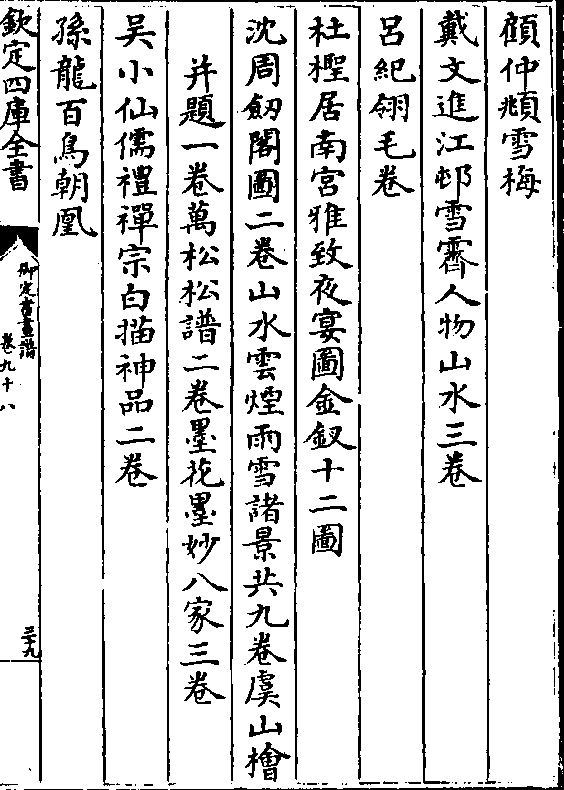 顧仲頫雪梅
戴文進江邨雪霽人物山水三卷
呂紀翎毛卷
杜檉居南宮雅致夜宴圖金釵十二圖
沈周劒閣圖二卷山水雲煙雨雪諸景共九卷虞山檜
并題一卷萬松松譜二卷墨花墨妙八家三卷
吴小仙儒禮禪宗白描神品二卷
孫龍百鳥朝凰
欽定四庫全書
御定書畫譜
卷九十八
三十九